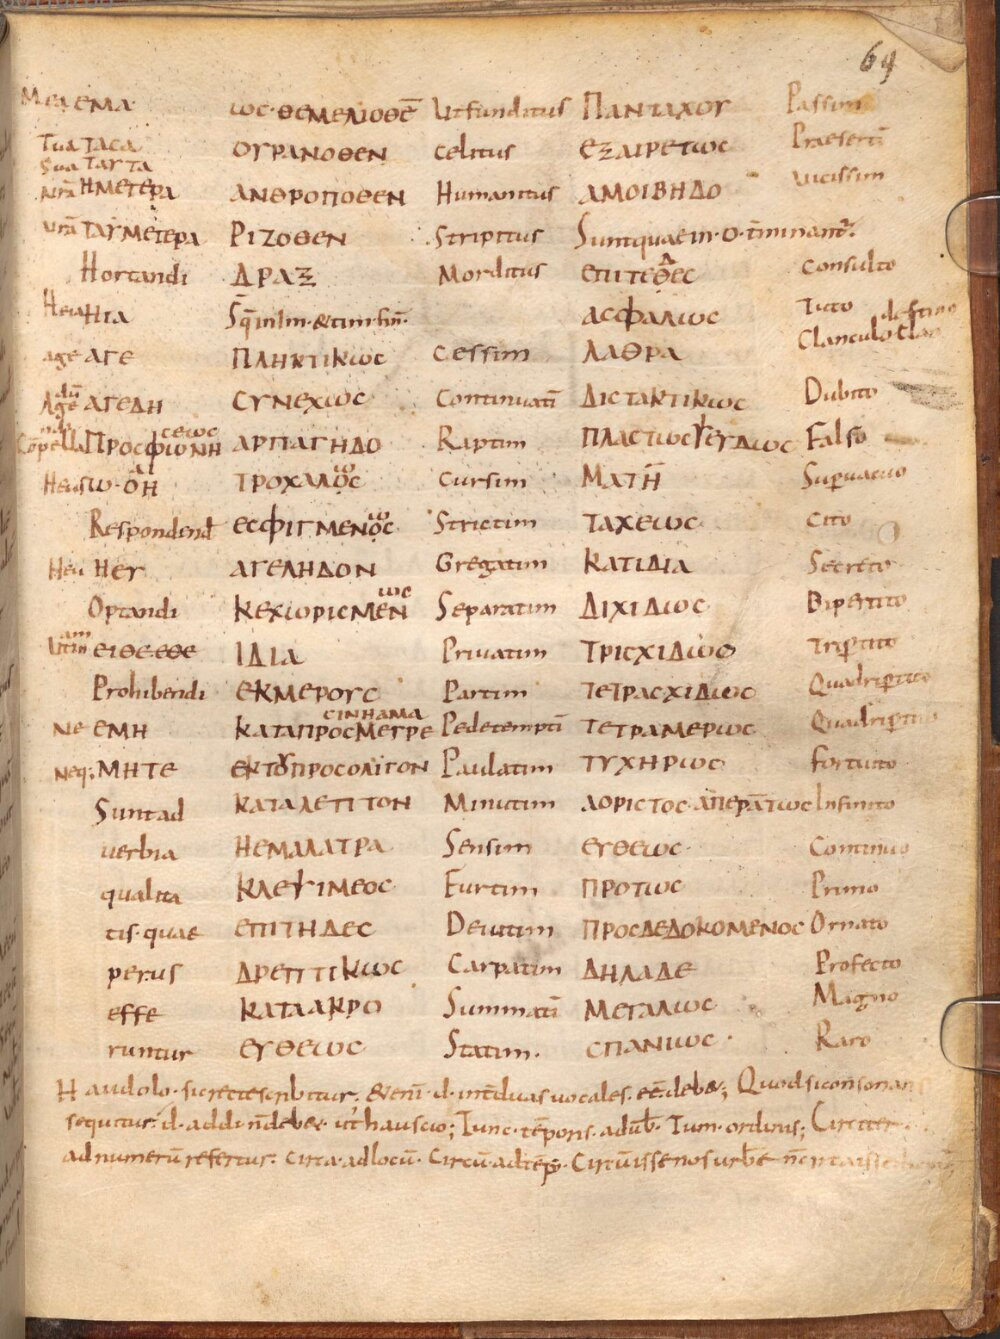 64
Mea ΕΜΑ ΙωC·ΘΕΜΕΛΙΟΘΕ̄ Ut funditus ΠΑΝΤΑΧΟΥ Passim
Tua ΤΑCΑ ΟΥΡΑΝΟΘΕΝ Celitus ΕΞΑΙΡΕΤωC Praeserti̅
Sua ΤΑΥΤΑ
nr̅a ΗΜΕΤΕΡΑ ΑΝΘΡΟΠΟΘΕΝ Humanitus ΑΜΟΙΒΗΔΟ uicissim
ur̅a ΤΑΥΜΕΤΕΡΑ ΡΙΖΟΘΕΝ Stirpitus Sunt quae in·o·t̅minant᷑
Hortandi ΔΡΑΞ Morditus ΕΠΙΤΕΘΕC consulto
Heia ΗΙΑ Sq̅ in im·&tim·fin̅· ΑCΦΑΛΙωC Tuto
age ΑΓΕ ΠΛΗΚΤΙΚωC Cessim ΛΑΘΡΑ Clanculo
Agedu̅ ΑΓΕΔΗ CΥΝΕΧωC Continuati̅ ΔΙCΤΑΚΤΙΚωC Dubito
ΠΡΟCΦωΝΗCΕωC ΑΡΠΑΓΗΔΟ Raptim ΠΛΑCΤωC ΨΕΥΔωC Falso
Heus ω·ΟΗ ΤΡΟΧΑΛΟC Cursim ΜΑΤΗ̄ Sup̅uacuo
Respondend̅ ΕCΦΙΓΜΕΝΟC Strictim ΤΑΧΕωC cito
Heu ΗΕΥ ΑΓΕΛΗΔΟΝ Gregatim ΚΑΤΙΔΙΑ Secreto
Optandi ΚΕΧωΡΙCΜΕΝωC Separatim ΔΙΧΙΔωC Bipertito
Utinam ΕΙΘΕ·ΕΘΕ ΙΔΙΑ Priuatim ΤΡΙCΧΙΔωC Trip̅tito
Prohibendi ΕΚΜΕΡΟΥC Partim ΤΕΤΡΑCΧΙΔωC Quadrip̅tito
Ne ΕΜΗ ΚΑΤΑΠΡΟCΜΕΓΡΕ CΙΝΗΑΜΑ Pedetempti̅ ΤΕΤΡΑΜΕΡωC Quadrip̅tito
Neq; ΜΗΤΕ ΕΚΤΟΥΠΡΟCΟΛΙΓΟΝ Paulatim ΤΥΧΗΡωC fortuito
Sunt ad ΚΑΤΑΛΕΠΤΟΝ Minutim ΑΟΡΙCΤΟC·ΑΠΕΡΑΤωC Infinito
uerbia ΗΕΜΑΛΑΤΡΑ Sensim ΕΥΘΕωC· Continuo
qualita ΚΛΕΨΙΜΕΟC Furtim ΠΡΟΤωC Primo
tis·quae ΕΠΙΤΗΔΕC Deuitim ΠΡΟCΔΕΔΟΚΟΜΕΝΟC Ornato
per·us ΔΡΕΠΤΙΚωC Carpatim ΔΗΛΑΔΕ Profecto
effe ΚΑΤΑΑΚΡΟ Summati̅ ΜΕΓΑΛωC Magno
runtur ΕΥΘΕωC Statim· CΠΑΝΙωC Raro
Haudolo·sic recte scribitur· &eni̅·d·int̅ duas uocales·ee̅ deb&; Quod si consonans
sequitur·d·addi n̅ deb&·ut hauscio; Tunc·te̅poris·adu̅b· Tum·ordinis; Circiter
ad numeru̅ refertur· circa·ad locu̅· Circu̅·ad te̅p̅· Circu̅isse nos urbe̅ n̅ circaisse